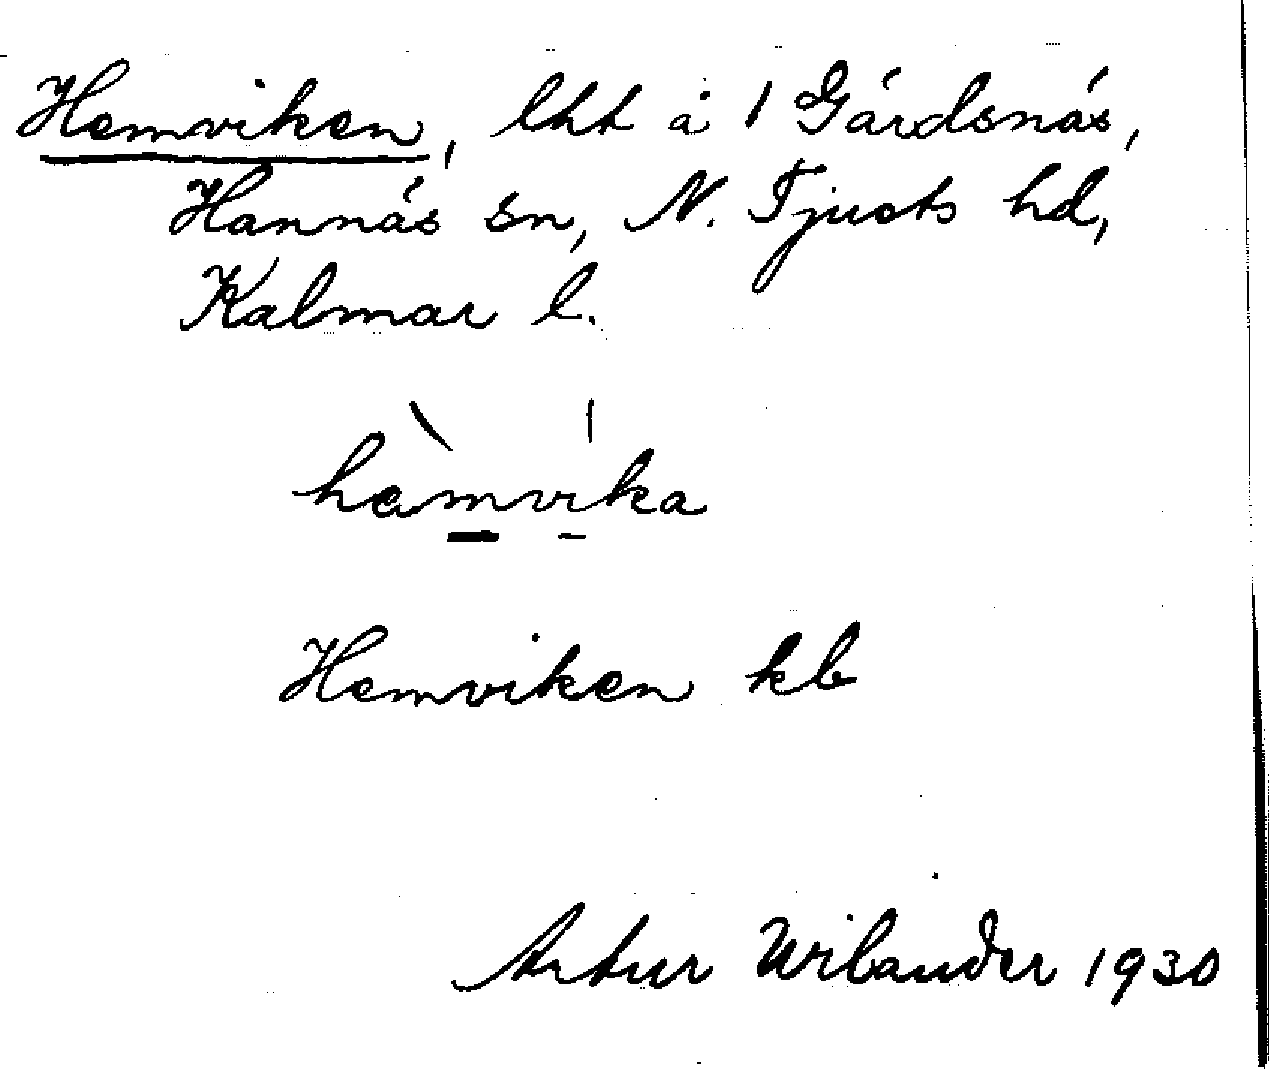 Hemviken, lht å 1 Gårdsnäs,
Hannäs sn, N. Tjusts hd,
Kalmar l.
hæ̀mvíka
Hemviken kb
Artur Wilander 1930